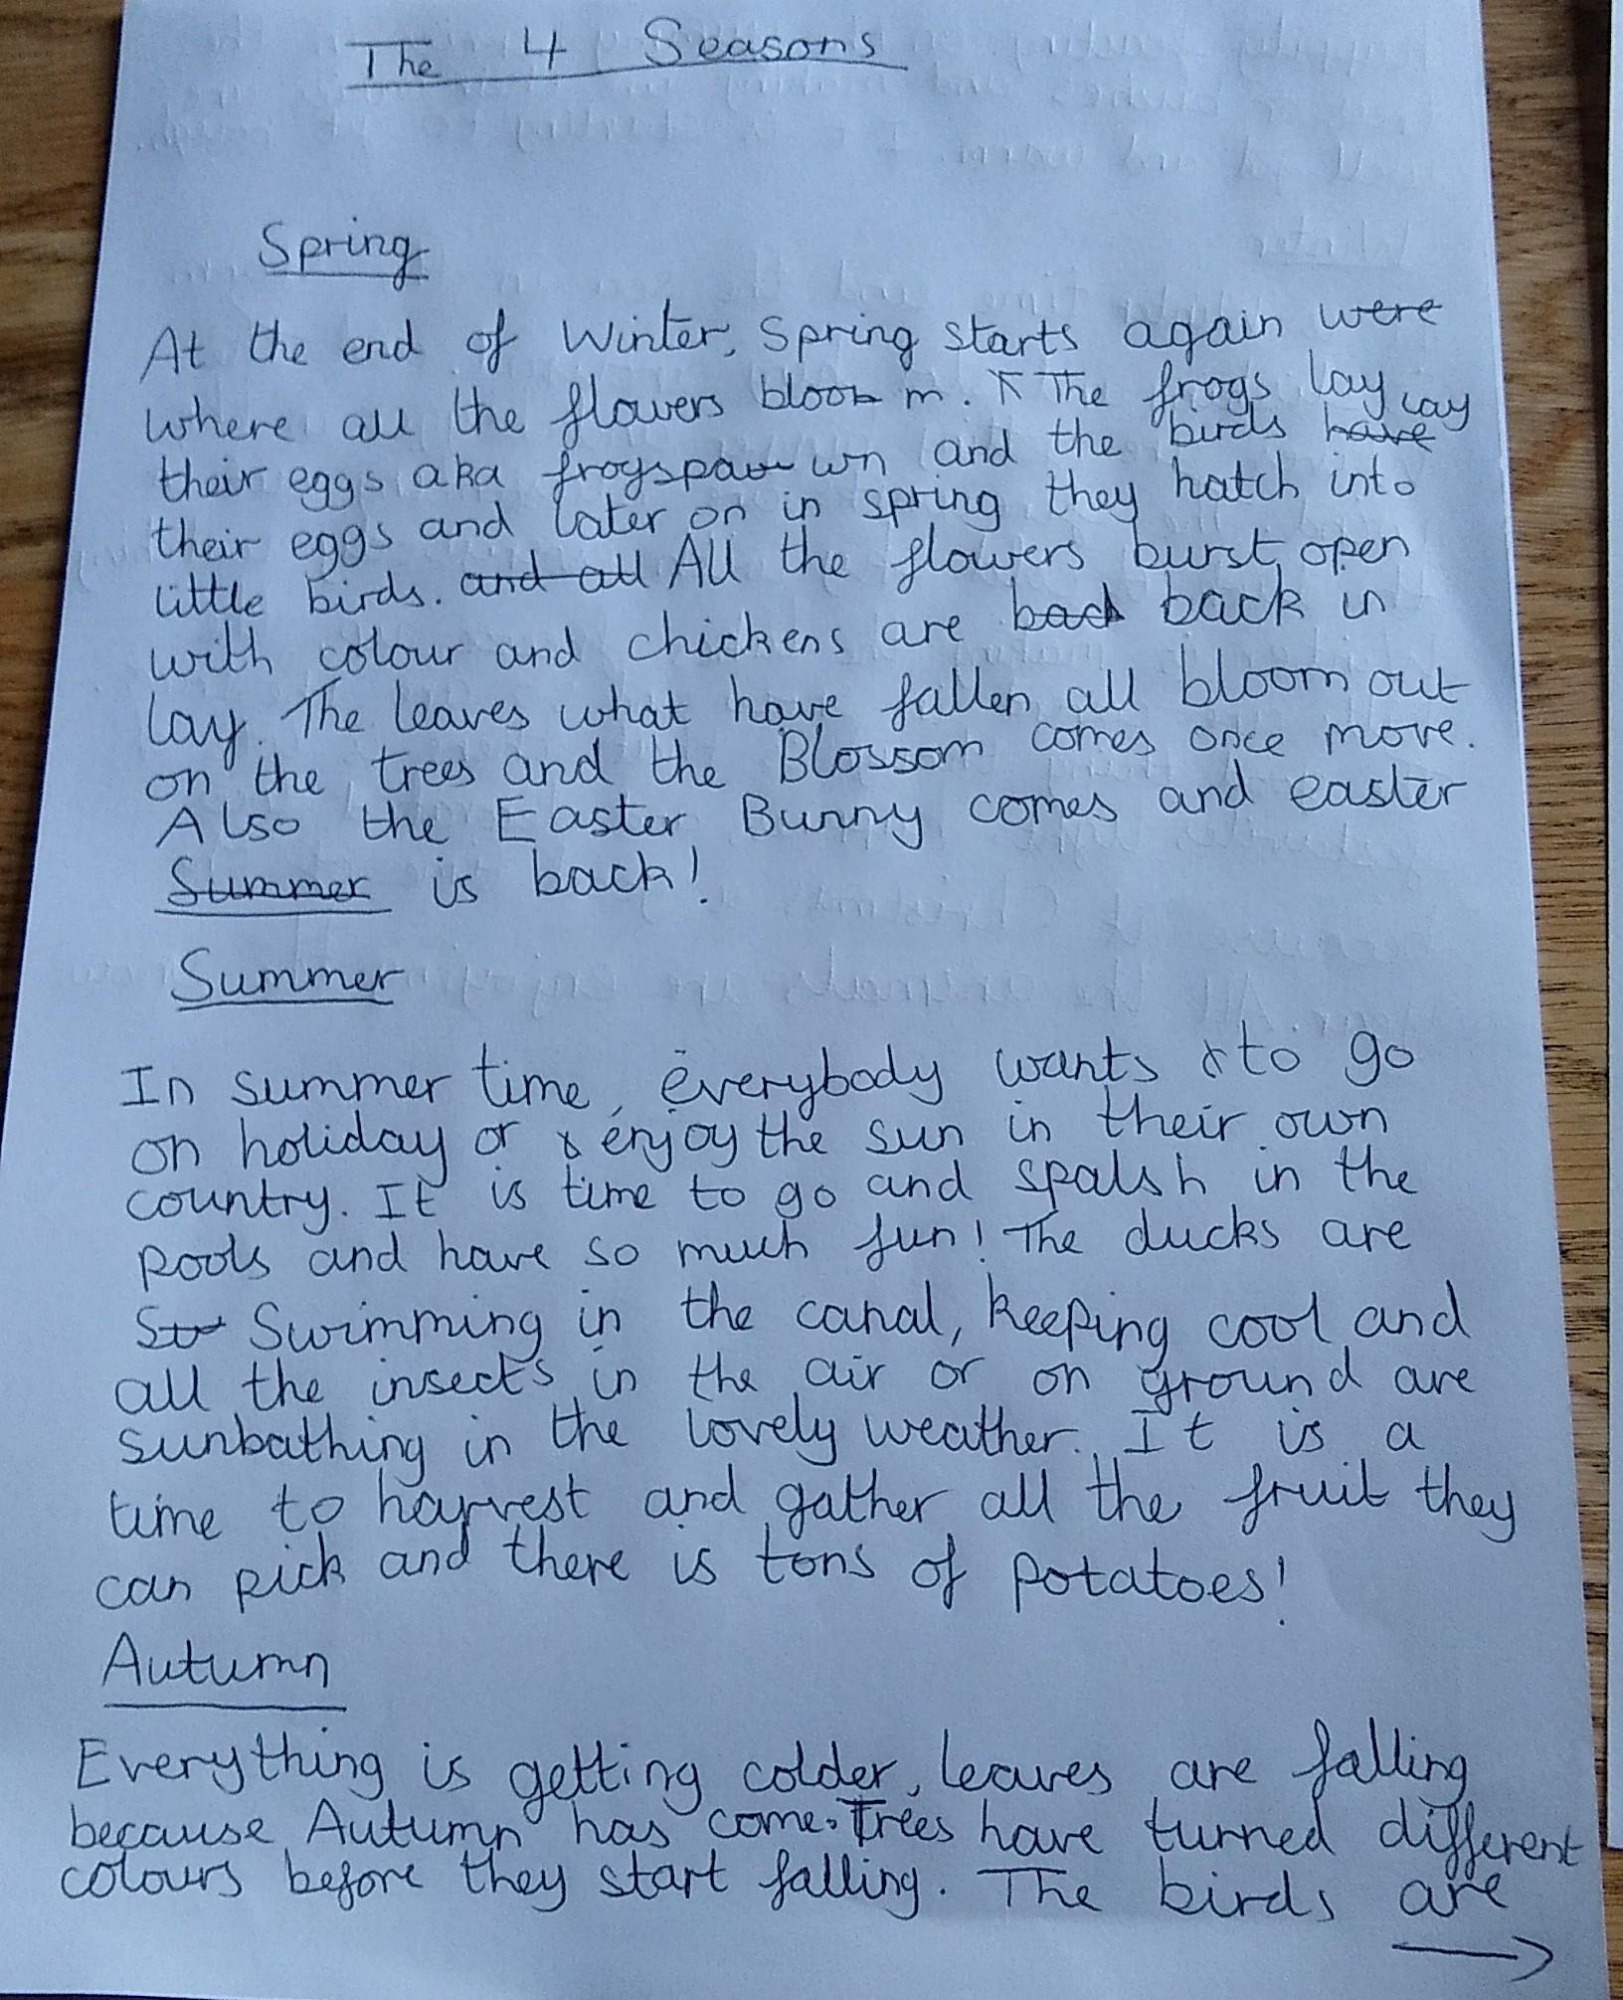 The 4 Seasons
Spring
At the end of Winter, Spring starts again were
where all the flowers bloo m. The frogs lay
their eggs aka frogspaw wn and the birds have lay
their eggs and later on in spring they hatch into
little birds. and all All the flowers burst open
with colour and chickens are back back in
lay. The leaves what have fallen all bloom out
on the trees and the Blossom comes once more.
Also the Easter Bunny comes and easter
Summer is back!
Summer
In summer time, everybody wants to go
on holiday or enjoy the sun in their own
country. It is time to go and spalsh in the
pools and have so much fun! The ducks are
Sw Swimming in the canal, keeping cool and
all the insects in the air or on ground are
sunbathing in the lovely weather. It is a
time to harvest and gather all the fruit they
can pick and there is tons of potatoes!
Autumn
Everything is getting colder, leaves are falling
because Autumn has come. Trees have turned different
colours before they start falling. The birds are
→